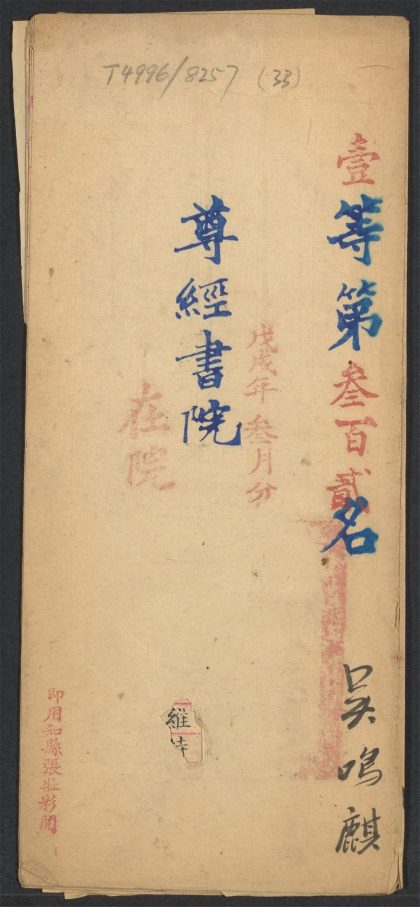 T4996/8257 (33)
壹等第叁百貳名
吳鳴麒
戊戌年叁月分
尊經書院
在院
維
即用知縣張壯彩閱